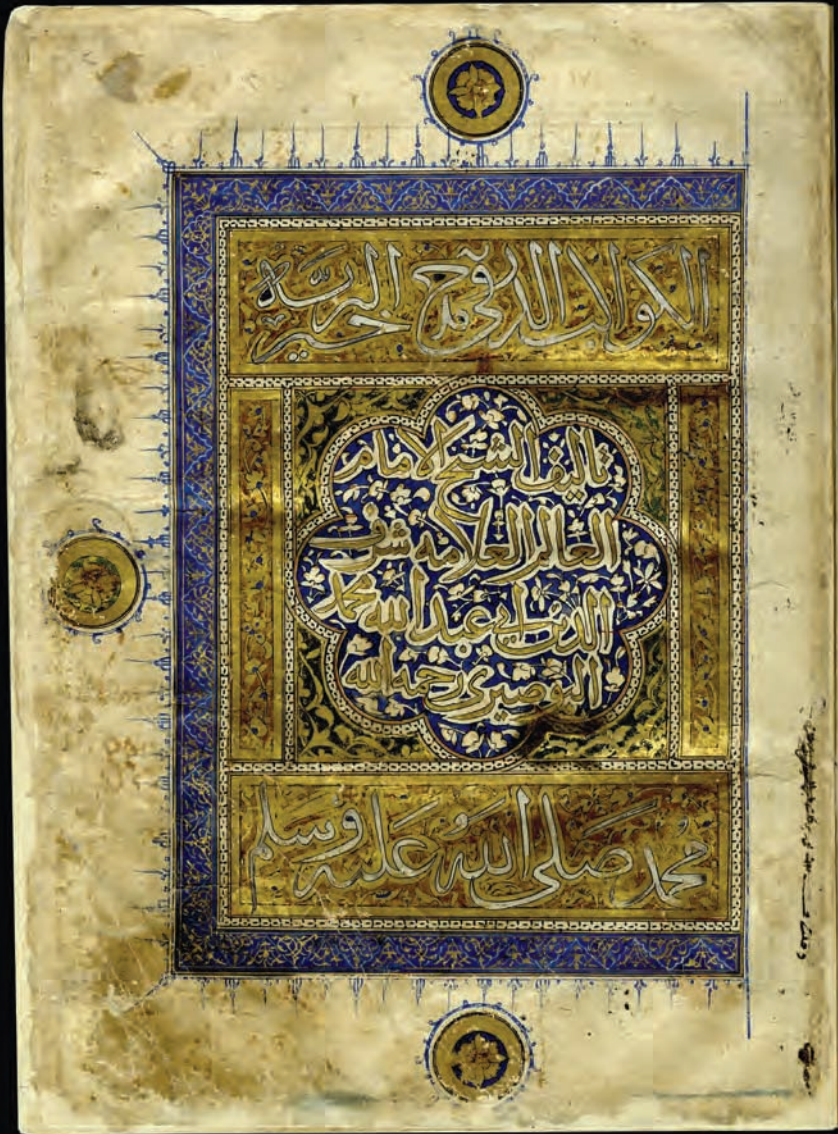 الكواكب الدرية في مدح خير البريه
تاليف الشيخ الامام
العالم العلامه شرف
الدين ابي عبد الله محمد
البوصيري رحمه الله
محمد صلى الله عليه وسلم